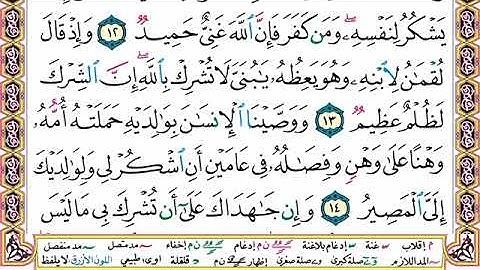 يَشْكُرُ لِنَفْسِهِۦ ۖ وَمَن كَفَرَ فَإِنَّ ٱللَّهَ غَنِىٌّ حَمِيدٌ ١٢ وَإِذْ قَالَ
لُقْمَٰنُ لِٱبْنِهِۦ وَهُوَ يَعِظُهُۥ يَٰبُنَىَّ لَا تُشْرِكْ بِٱللَّهِ ۖ إِنَّ ٱلشِّرْكَ
لَظُلْمٌ عَظِيمٌ ١٣ وَوَصَّيْنَا ٱلْإِنسَٰنَ بِوَٰلِدَيْهِ حَمَلَتْهُ أُمُّهُۥ
وَهْنًا عَلَىٰ وَهْنٍ وَفِصَٰلُهُۥ فِى عَامَيْنِ أَنِ ٱشْكُرْ لِى وَلِوَٰلِدَيْكَ
إِلَىَّ ٱلْمَصِيرُ ١٤ وَإِن جَٰهَدَاكَ عَلَىٰٓ أَن تُشْرِكَ بِى مَا لَيْسَ
م إقلاب س غنة إدغام بلاغنة ن م إدغام ن م إخفاء مد متصل مد منفصل
المد اللازم صلة كبرى صلة صغرى إظهار ن م قلقلة أوى طبيعي اللون الأزرق لا يلفظ